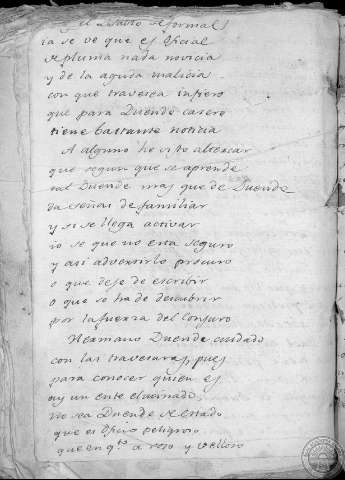 formal
ia se ve que es oficial
de pluma nada novicia
y de la aguda malicia
con que travesea infiero
que para Duende casero
tiene bastante noticia
A alguno he visto altercar
que segun que se aprende
tal Duende mas que de Duende
da señas de familiar
y si se llega activar
io se que no esta seguro
y asi advertirlo procuro
o que deje de escribir
o que se ha de descubrir
por la fuerza del Conjuro
Hermano Duende cuidado
con las travesuras, pues
para conocer quien es
ay un ente
no sea Duende de Estado
que es oficio peligroso
que en q.to a y velloso